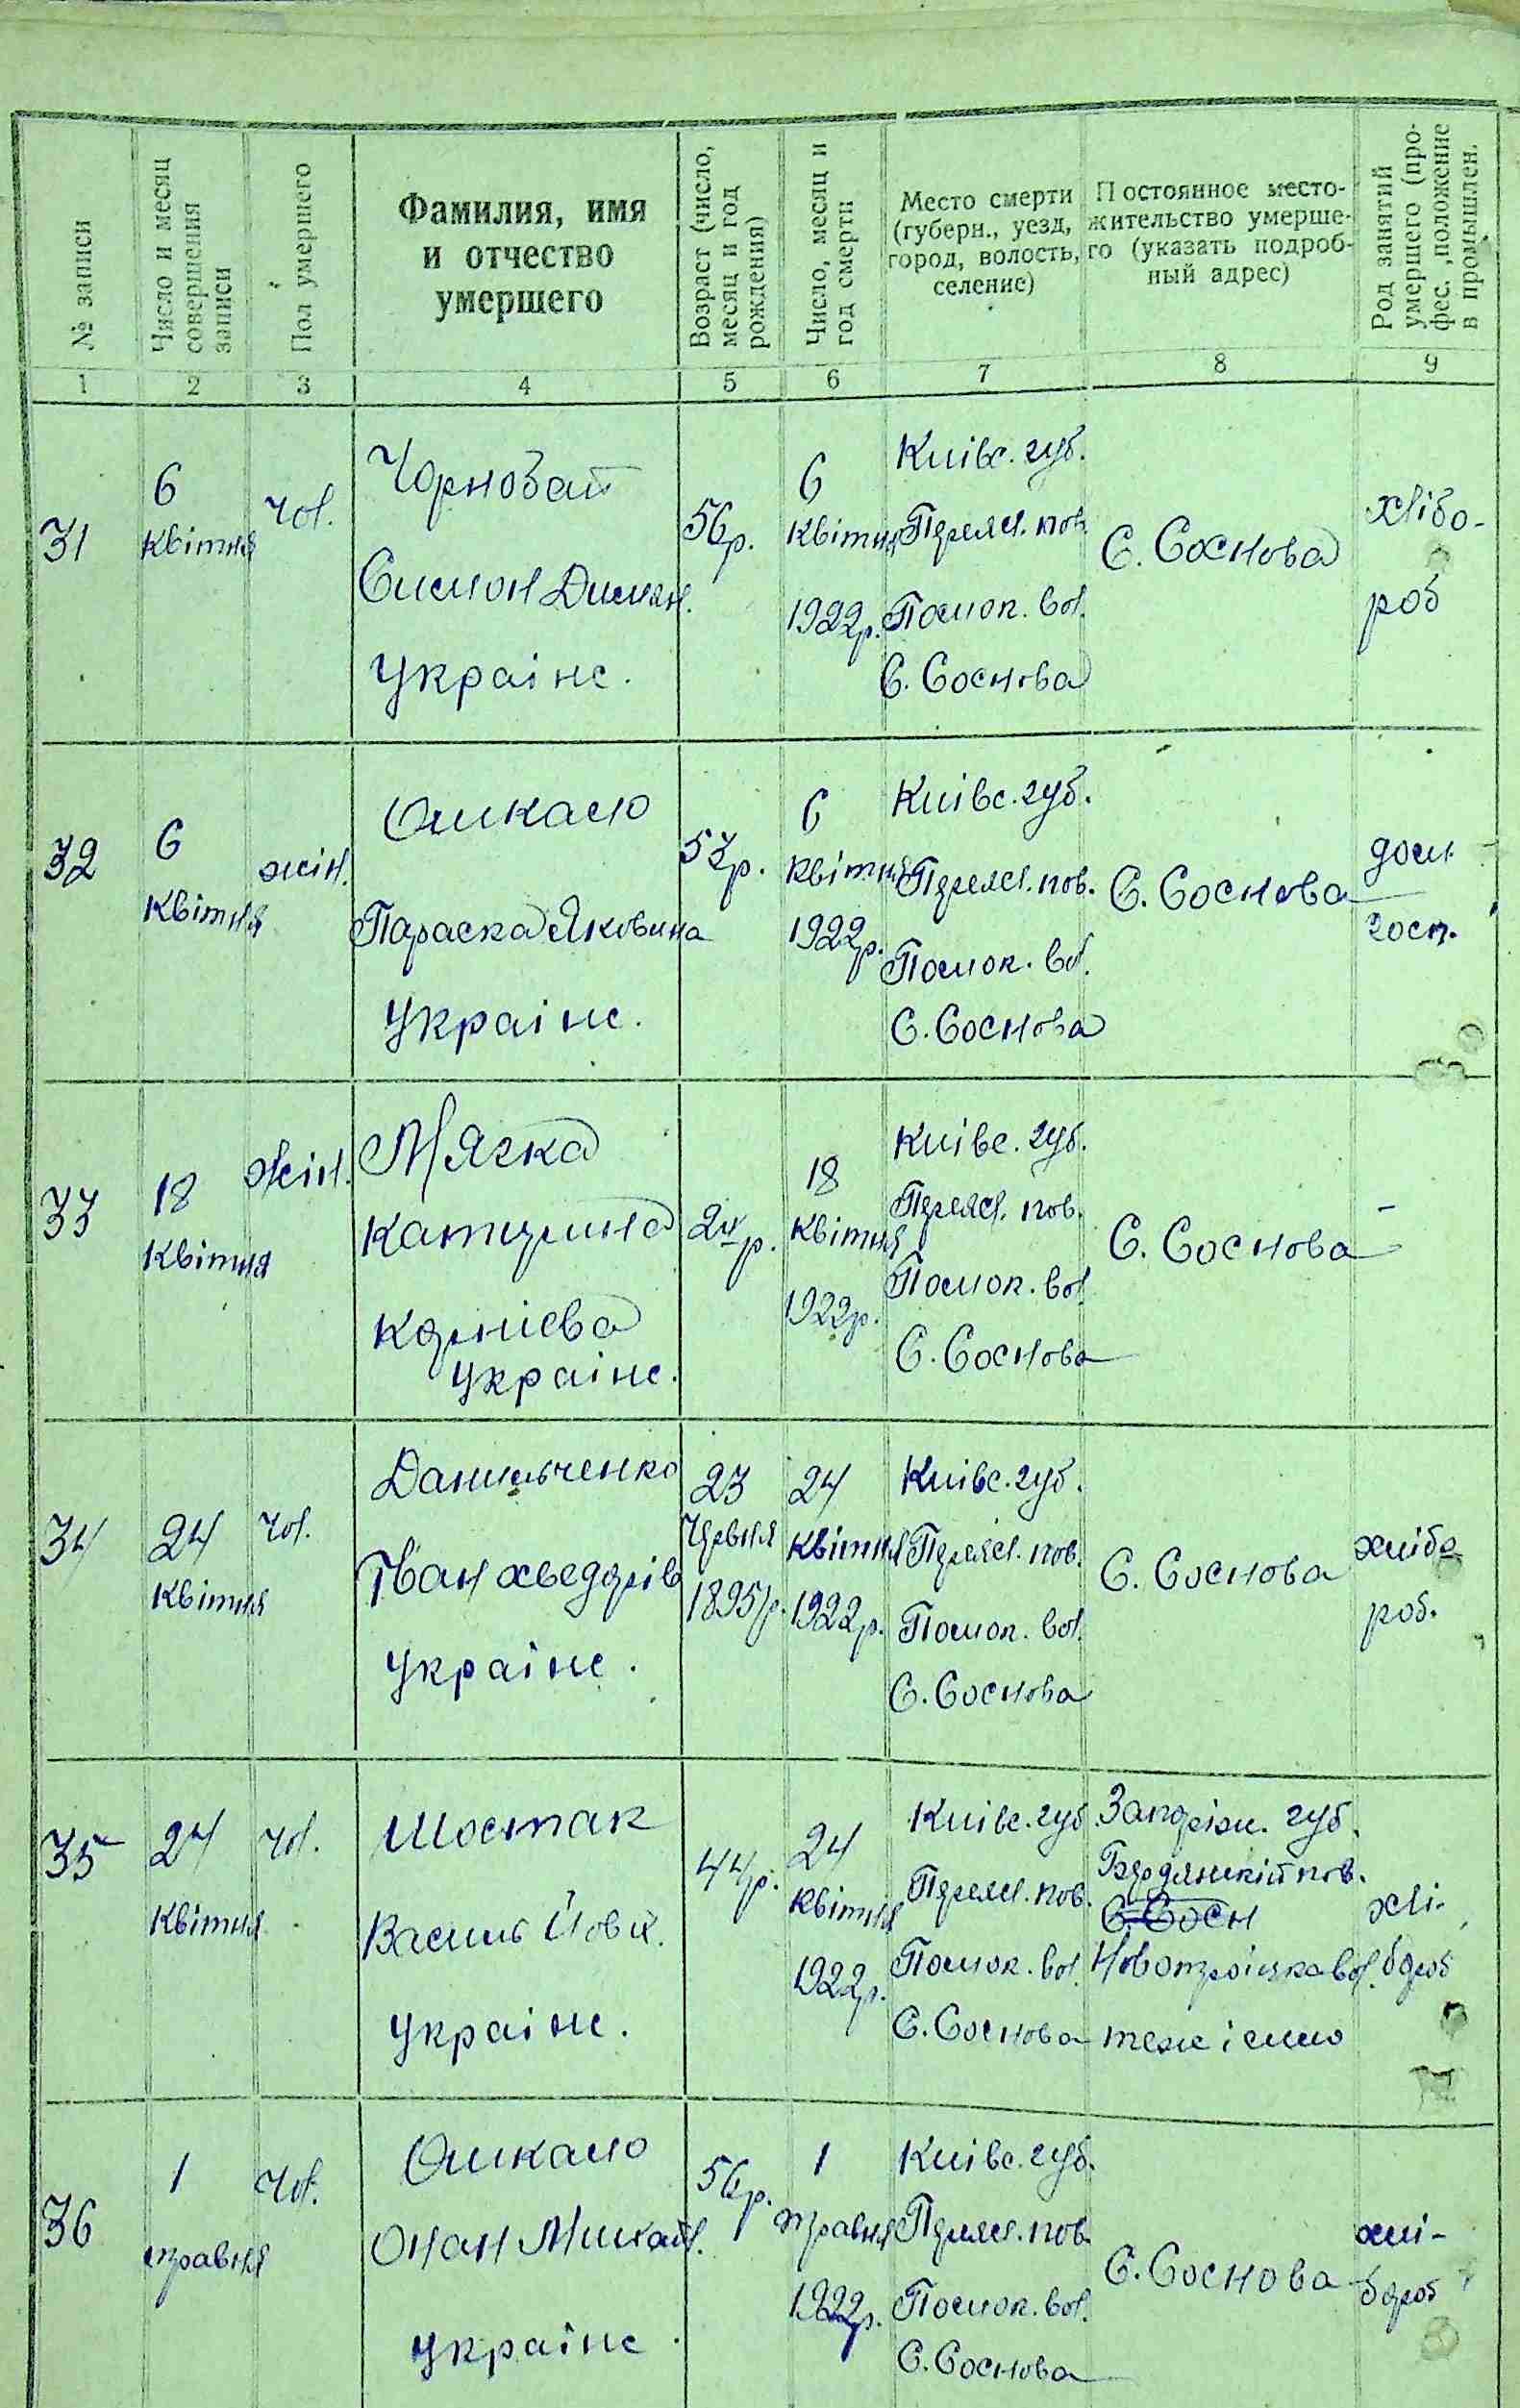 № записи
Число и месяц
совершения
записи
Пол умершего
Фамилия, имя
и отчество
умершего
Возраст (число,
месяц и год
рождения)
Число, месяц и
год смерти
Место смерти
(губерн., уезд,
город, волость,
селение)
Постоянное место-
жительство умерше-
го (указать подроб-
ный адрес)
Род занятий
умершего (про-
фес., положение
в промышлен.
1 2 3 4 5 6 7 8 9
31
6
квітня
чол.
Чорнобай
Симон Димян.
Україне.
56р.
6
квітня
1922р.
Київс. губ.
Переясл. пов.
Помок. вол.
С. Соснова
С. Соснова
хлібо-
роб
32
6
квітня
жін.
Ошкало
Параска Яковина
Україне.
53р.
6
квітня
1922р.
Київс. губ.
Переясл. пов.
Помок. вол.
С. Соснова
С. Соснова
дом.
госп.
33
18
квітня
жін.
Мягка
Катерина
Корнієва
Україне.
2р.
18
квітня
1922р.
Київс. губ.
Переясл. пов.
Помок. вол.
С. Соснова
С. Соснова
-
34
24
квітня
чол.
Данильченко
Іван Хведорів
Україне.
23
Червня
1895р.
24
квітня
1922р.
Київс. губ.
Переясл. пов.
Помок. вол.
С. Соснова
С. Соснова
хлібо
роб.
35
24
квітня
чол.
Шостак
Василь Йовх.
Україне.
44р.
24
квітня
1922р.
Київс. губ.
Переясл. пов.
Помок. вол.
С. Соснова
Запоріж. губ.
Бердянський пов.
С. Сосн
Новотроіцка вол.
теж і село
хлі-
бороб
36
1
травня
чол.
Ошкало
Онан Михайл.
Україне
56р.
1
травня
1922р.
Київс. губ.
Переясл. пов.
Помок. вол.
С. Соснова
С. Соснова
хлі-
бороб